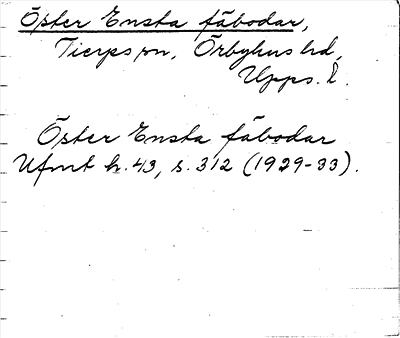 Öster Ensta fäbodar,
Tierps sn, Örbyhus hd,
Upps. l.
Öster Ensta fäbodar
Ufmt h. 43, s. 312 (1929-33).